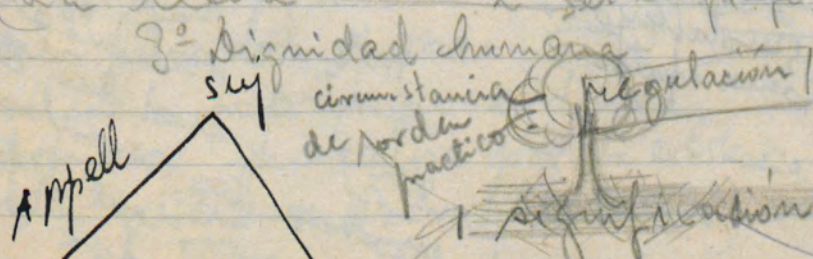 3º Dignidad humana
suj
circunstancia
de orden
practico
regulación
Appell
1 significación